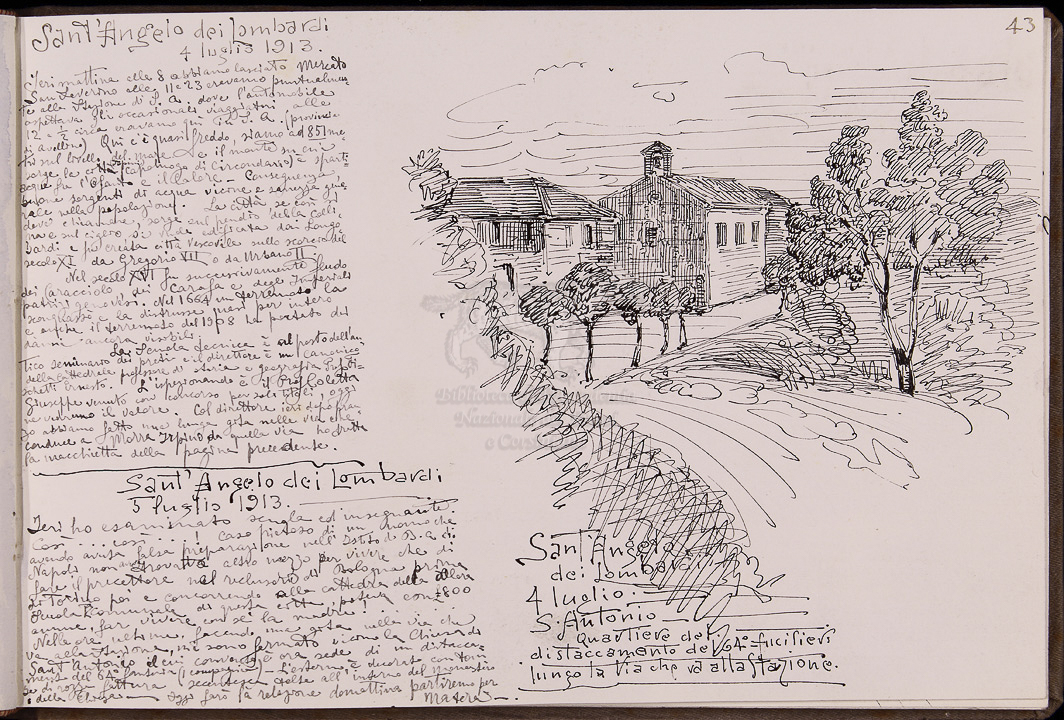 43
Sant'Angelo dei Lombardi
4 luglio 1913.
Ieri mattina alle 8 abbiamo lasciato Mercato
San Severino alle 11 e 23 eravamo puntualmen-
te alla Stazione di S. A. dove l'automobile
aspettava gli occasionali viaggiatori alle
12 e ½ circa eravamo qui in S. A. (provincia
di Avellino) Qui c'è quasi freddo, siamo ad 851 me-
tri sul livello del mare e il monte su cui
sorge la città (capoluogo di Circondario) è sparti-
acque fra l'Ofanto e il Calore. Conseguenza,
buone sorgenti di acqua vicone e salvezza gene-
rale nella popolazione. La città se così si
deve chiamare, sorge sul pendio della Colli-
na e sul ciglio si vede edificata dai Longo-
bardi e fu eretta città vescovile sullo scorcio del
secolo XI da Gregorio VII o da Urbano II
Nel secolo XVI fu successivamente feudo
dei Caracciolo dei Carafa e degli Imperiali
patrizi genovesi. Nel 1664 un terremoto la
e la distrusse quasi per intero
e anche il terremoto del 1908 ha portato dei
danni ancora visibili.
La Scuola tecnica è al posto dell'an-
tico seminario dei preti e il direttore è un canonico
della Cattedrale professore di storia e geografia
Ernesto. L'ispezionando è il Prof Coletta
Giuseppe venuto con concorso per soli titoli, oggi
ne vedremo il valore. Col direttore ieri dopo pran-
zo abbiamo fatto una lunga gita nella via che
conduce a Morra Irpino da quella via ho tratta
la macchietta della pagina precedente.
Sant'Angelo dei Lombardi
5 luglio 1913.
Ieri ho esaminato scuola ed insegnante.
Così ... così ... ! Caso pietoso di un uomo che
avendo avuta falsa preparazione nell'Istit. di B. A. di
Napoli non ha trovato altro mezzo per vivere che di
fare il precettore nel reclusorio di Bologna prima
di Torino poi e concorrendo alla cattedra della allora
Scuola Comunale di questa città, poteva con £800
annue, far vivere con sé la madre!
Nelle ore ultime, facendo una gita nella via che
va alla stazione, mi sono fermato vicono la Chiesa di
Sant'Antonio il cui convento è ora sede di un distacca-
mento del 64° fanteria (1 compagnia). L'esterno è decorato con
di rozza fattura, secentesca tolte all'interno del monastero
e della Chiesa. Oggi farò la relazione domattina partiremo per
Matera.
Sant'Angelo
dei Lombardi
4 luglio.
S. Antonio
Quartiere del 64° fucilieri
distaccamento
lungo la Via che va alla Stazione.
Biblioteca
Nazionale